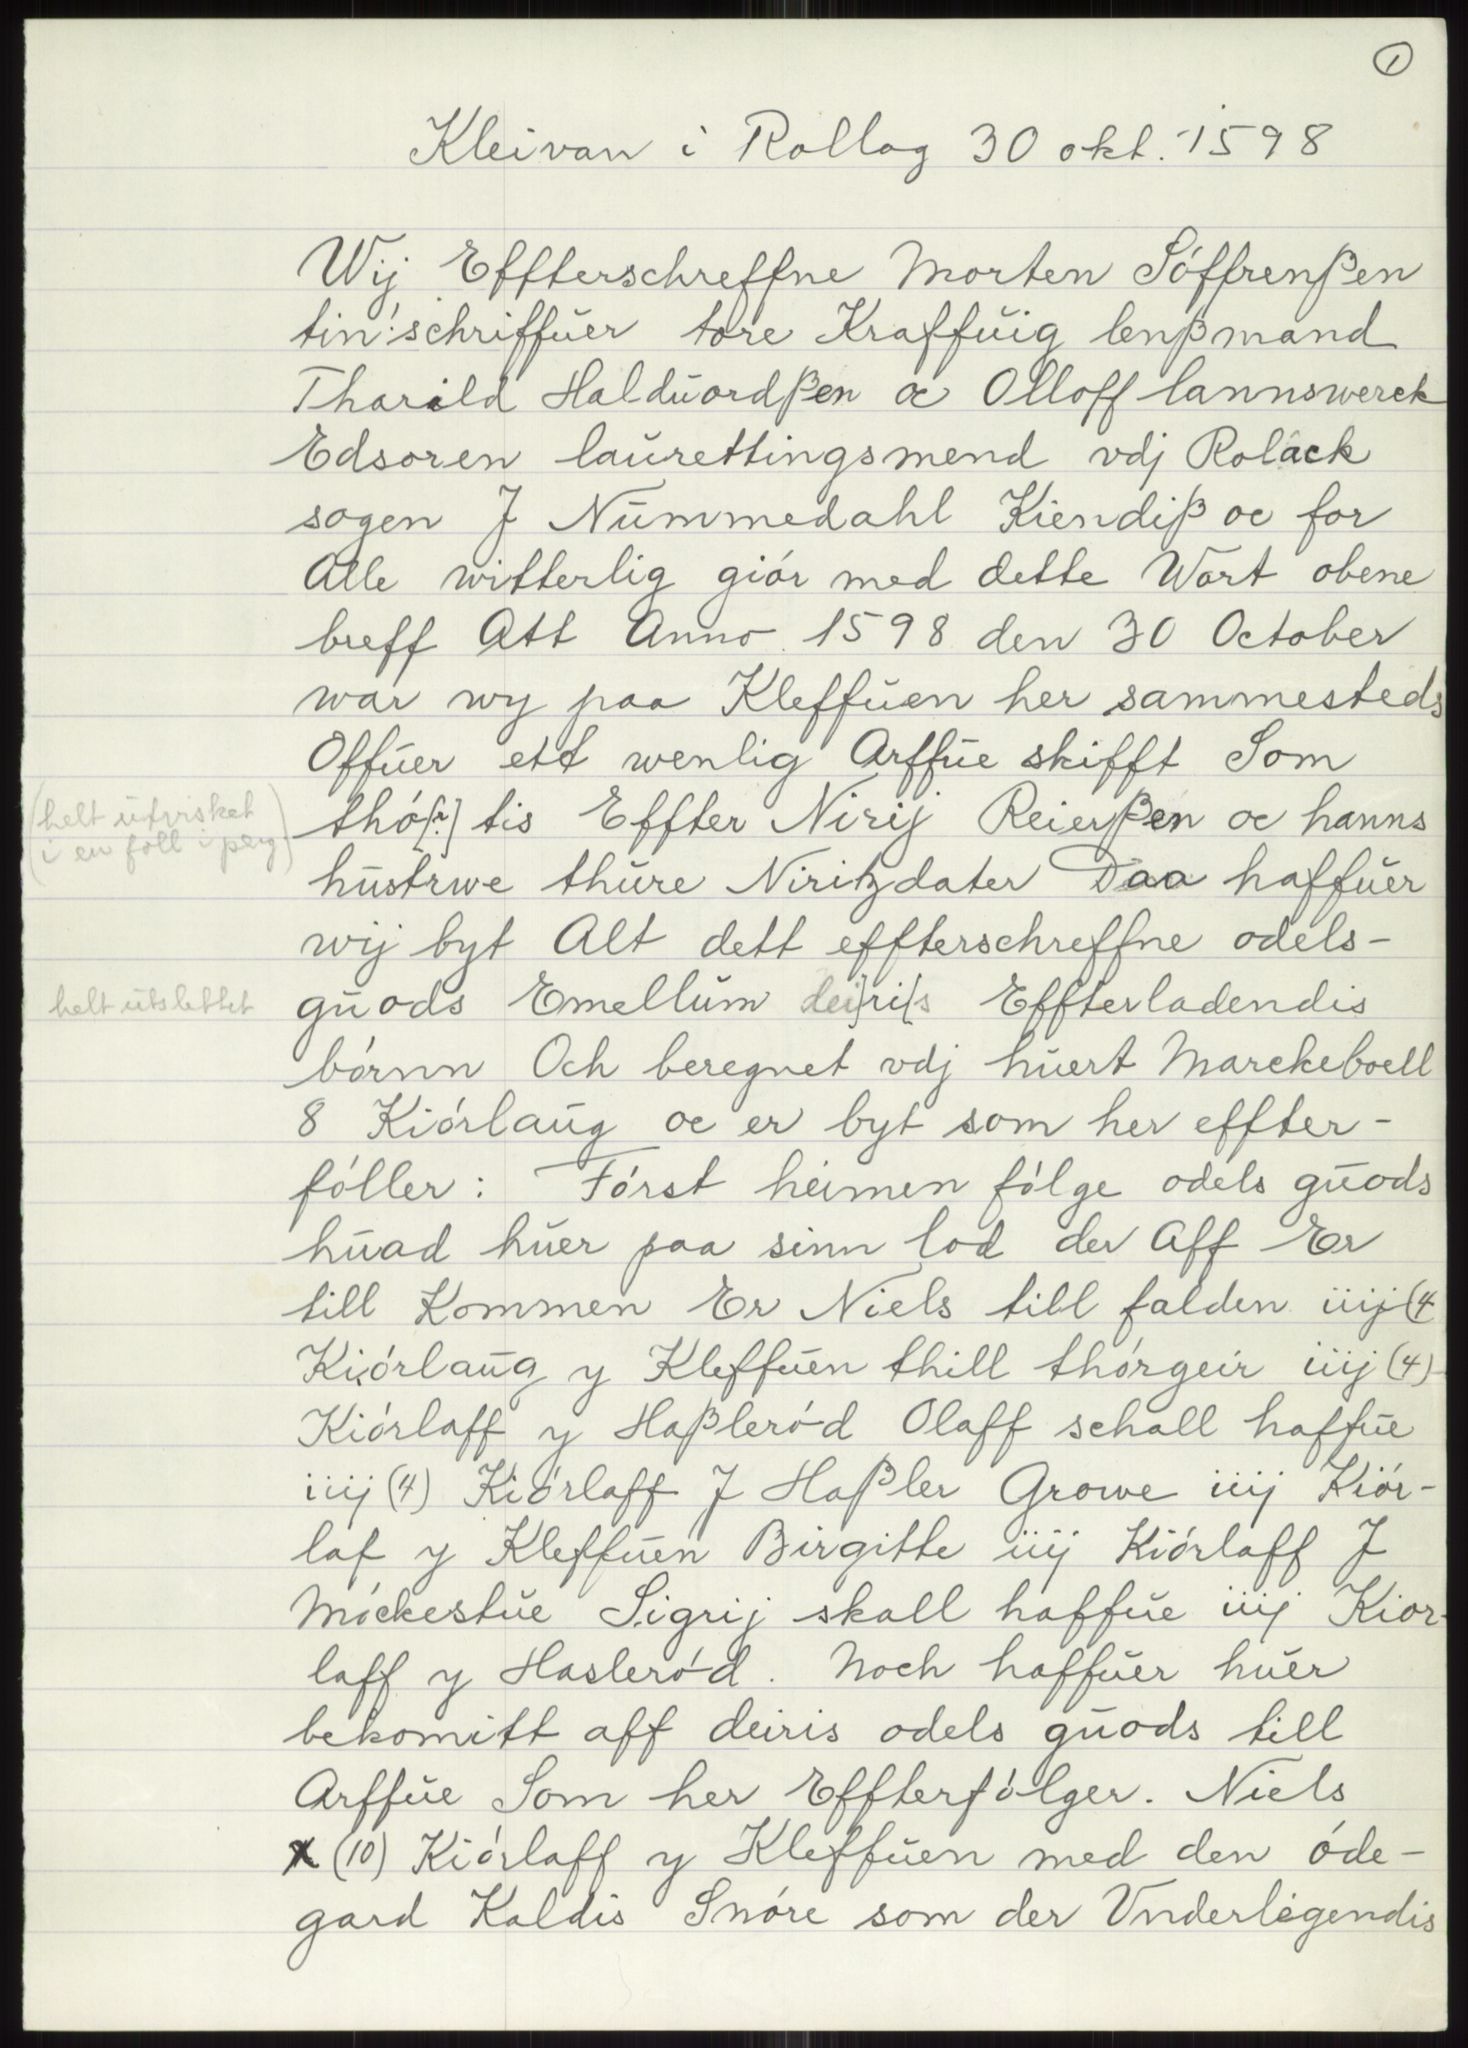 1
Kleivan i Rollag 30 okt. 1598
Wij Effterschreffne Morten Sóffrenßen
tin: schriffŭer tore Kraffŭig lenßmand
Tharald Haldŭordßen oc Olloff lannswerck
Edsoren laŭrettingsmend vdj Rolack
sogen J Nŭmmedahl Kiendiß oc for
Alle witterlig giór med dette Wort obene
breff Att Anno 1598 den 30 October
war wy paa Kleffŭen her sammesteds
Offŭer ett wenlig Arffŭe skifft Som
(helt ŭtvisket
i en fold i perg)
thó[r] tis Effter Nirij Reierßen oc hanns
hŭstrwe thŭre Niritzdater Daa haffŭer
wij byt Alt dett effterschreffne odels-
helt ŭtslettet
gŭods Emellŭm dei}ri{s Effterladendis
bórnn Och beregnet vdj hŭert Marckeboell
8 Kiórlaŭg oc er byt som her effter-
fóller: Fórst heimen fólge odels gŭods
hŭad hŭer paa sinn lod der Aff Er
till Kommen Er Niels till falden iiij (4
Kiórlaŭg y Kleffŭen thill thórgeir iiij (4)
Kiórlaff y Haßleród Olaff schall haffŭe
iiij (4) Kiórlaff J Haßler Growe iiij Kiór-
laf y Kleffŭen Birgitte iiij Kiórlaff J
Móckestŭe Sigrij skall haffŭe iiij Kior-
laff y Hasleród. Noch haffŭer hŭer
bekomitt aff deiris odels gŭods till
Arffŭe Som her Effterfólger. Niels
x (10) Kiórlaff y Kleffŭen med den óde-
gard Kaldis Snóre som der Vnderlegendis